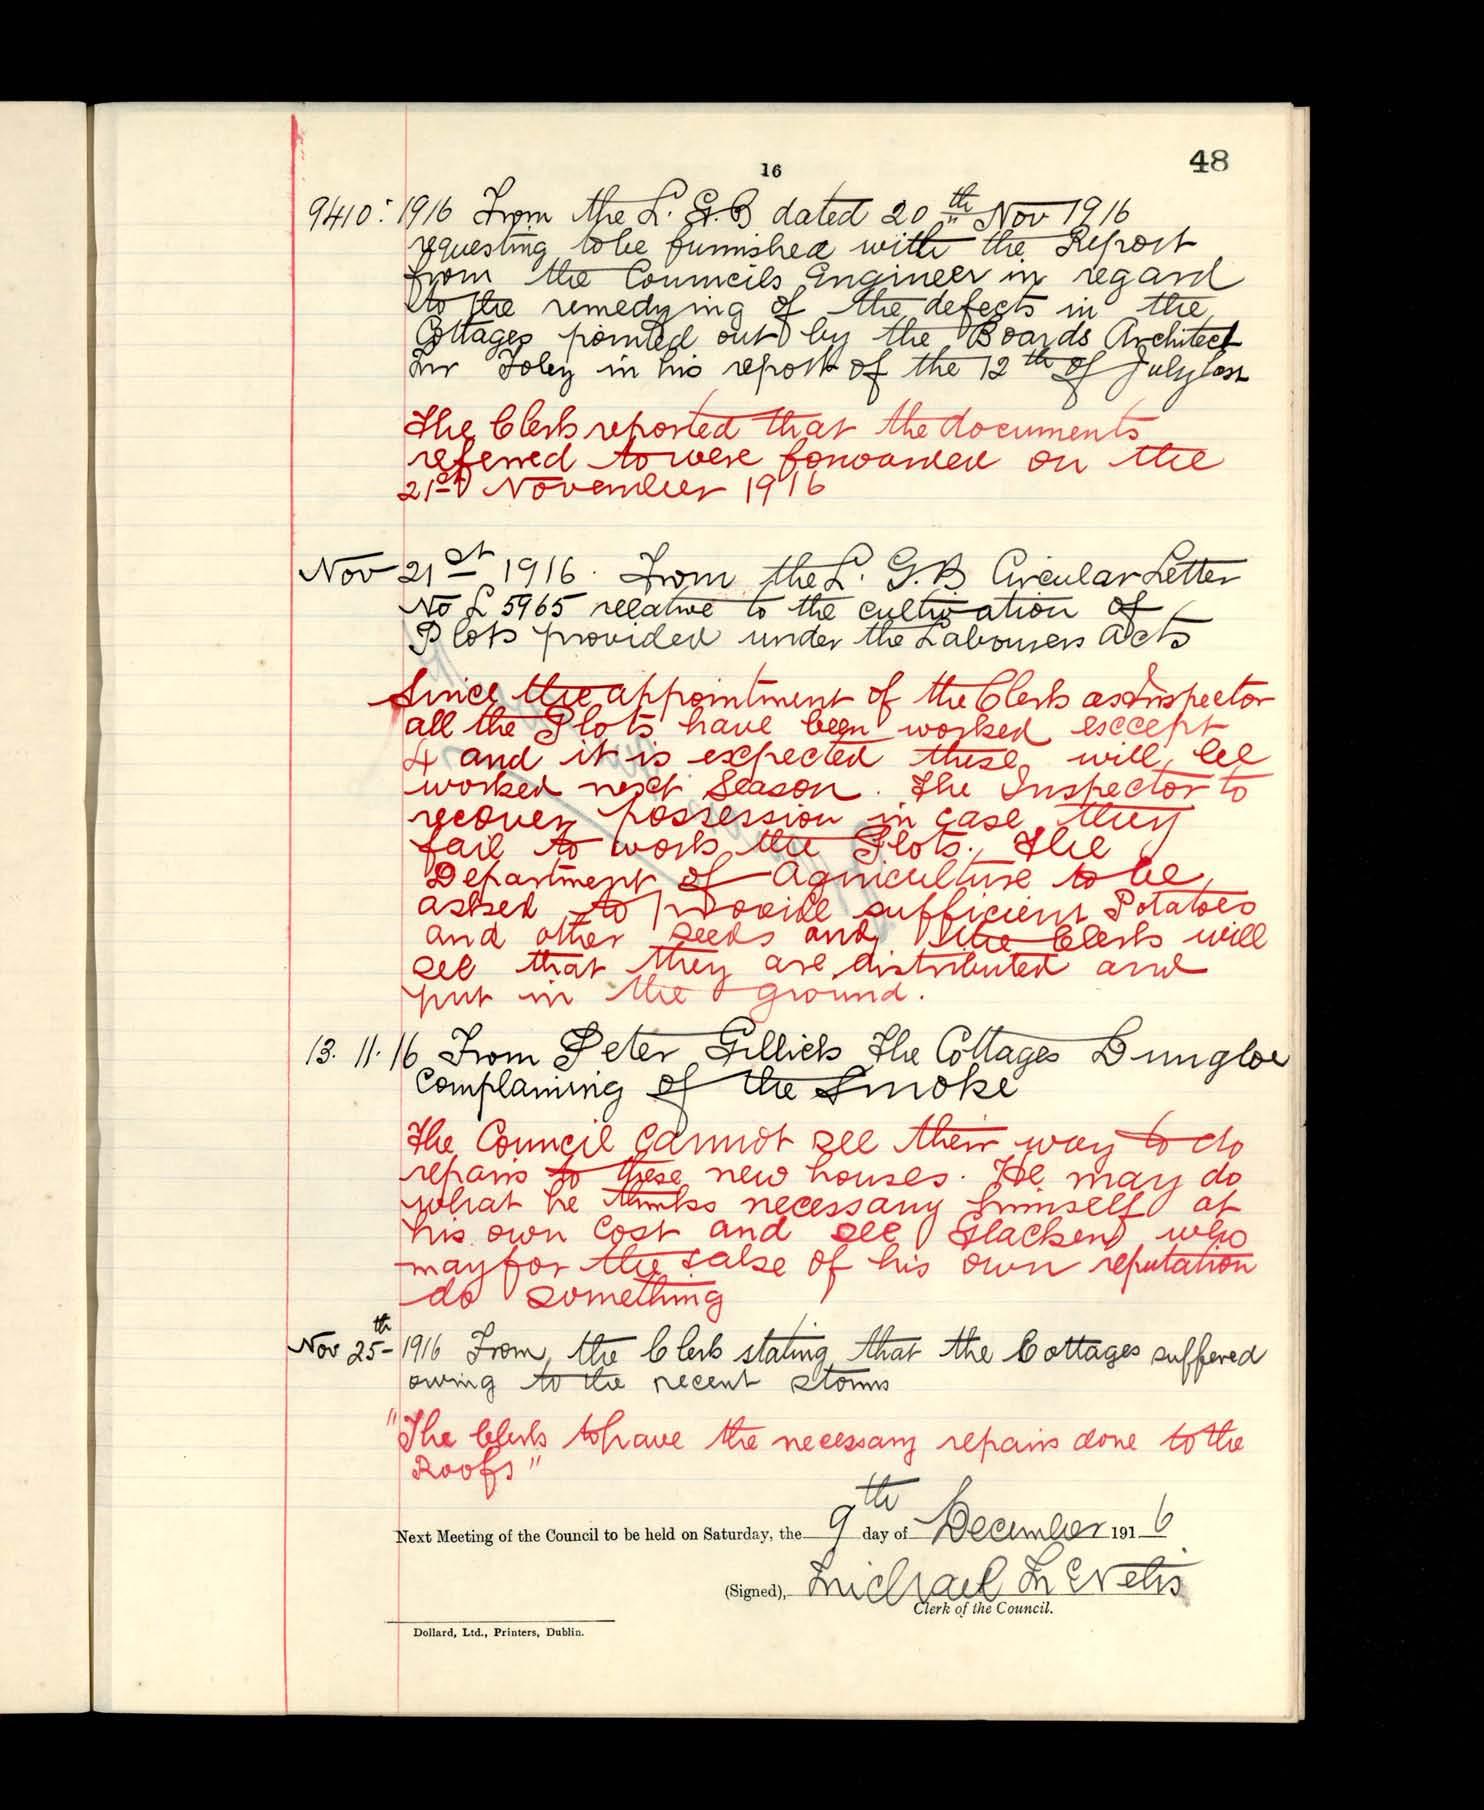 16
48
9410: 1916 From the L. G. B dated 20th Nov 1916
requesting to be furnished with the Report
from the Councils Engineer in regard
to the remedying of the defects in the
Cottages pointed out by the Boards Architect
Mr Foley in his report of the 12th of July last
The Clerk reported that the documents
referred to were forwarded on the
21st November 1916
Nov 21st 1916. From the L. G. B Circular Letter
No L 5965 relative to the cultivation of
Plots provided under the Labourers Acts
Since the appointment of the Clerk as Inspector
all the Plots have been worked esccept
4 and it is expected these will be
worked next Season. The Inspector to
recover possession in case they
fail to work the Plots. The
Department of Agriculture to be
asked to provide sufficient Potatoes
and other seeds and the Clerk will
see that they are distributed and
put in the ground.
13. 11. 16 From Peter Gillick The Cottages Dungloe
Complaining of the Smoke
The Council Cannot see their way to do
repairs to these new houses. He may do
what he thinks necessary himself at
his own Cost and see Glacken who
may for the sake of his own reputation
do something
Nov 25th 1916 From the Clerk stating that the Cottages suffered
owing to the recent storms
"The Clerk to have the necessary repairs done to the
Roofs"
Next Meeting of the Council to be held on Saturday, the 9th day of December 1916
(Signed), Michael
Clerk of the Council.
Dollard, Ltd., Printers, Dublin.